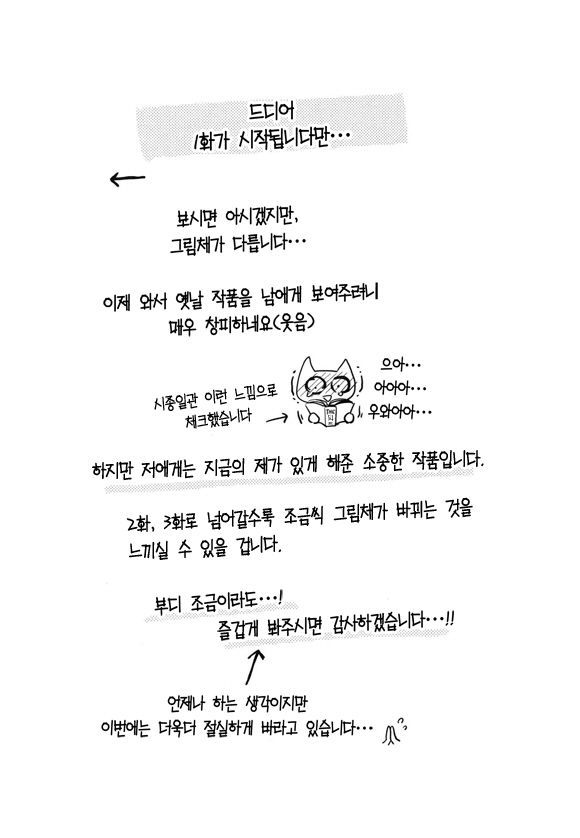 드디어
1화가 시작됩니다만…
보시면 아시겠지만,
그림체가 다릅니다…
이제 와서 옛날 작품을 남에게 보여주려니
매우 창피하네요(웃음)
시종일관 이런 느낌으로
체크했습니다
으아…
아아아…
우와아아…
하지만 저에게는 지금의 제가 있게 해준 소중한 작품입니다.
2화, 3화로 넘어갈수록 조금씩 그림체가 바뀌는 것을
느끼실 수 있을 겁니다.
부디 조금이라도…!
즐겁게 봐주시면 감사하겠습니다…!!
언제나 하는 생각이지만
이번에는 더욱더 절실하게 바라고 있습니다…